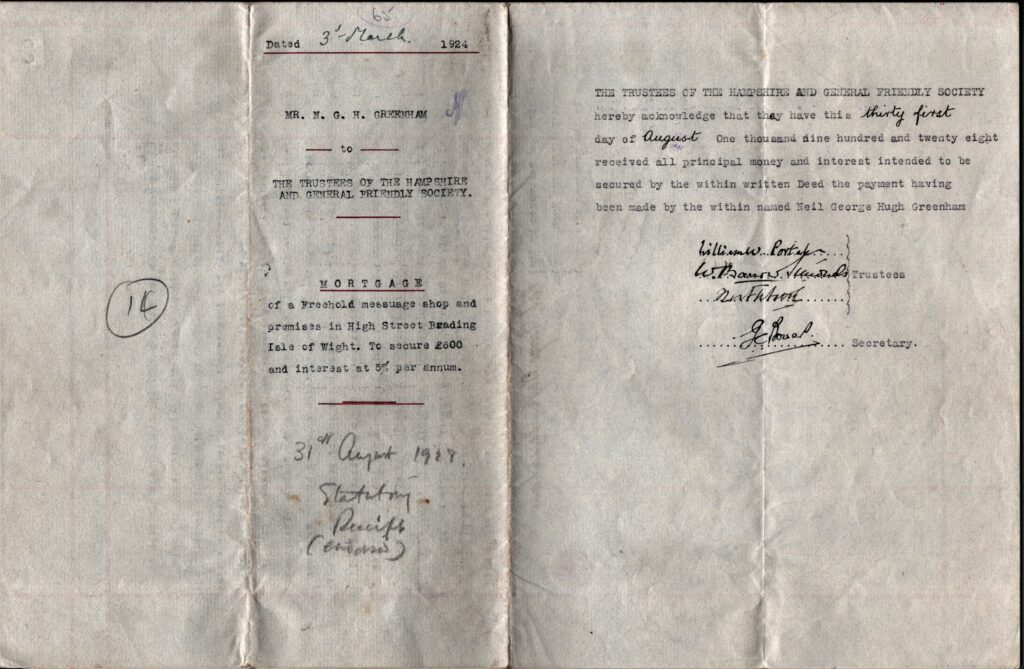 65
Dated 3rd March 1924
MR. N. G. H. GREENHAM
to
THE TRUSTEES OF THE HAMPSHIRE
AND GENERAL FRIENDLY SOCIETY.
MORTGAGE
of a Freehold messuage shop and
premises in High Street Brading
Isle of Wight. To secure £600
and interest at 5% per annum.
31st August 1928.
Statutory
Receipt
(endorsed)
14
THE TRUSTEES OF THE HAMPSHIRE AND GENERAL FRIENDLY SOCIETY
hereby acknowledge that they have this thirty first
day of August One thousand nine hundred and twenty eight
received all principal money and interest intended to be
secured by the within written Deed the payment having
been made by the within named Neil George Hugh Greenham
William W. Portal
W. Barrow Simonds Trustees
Northbrook
Secretary.